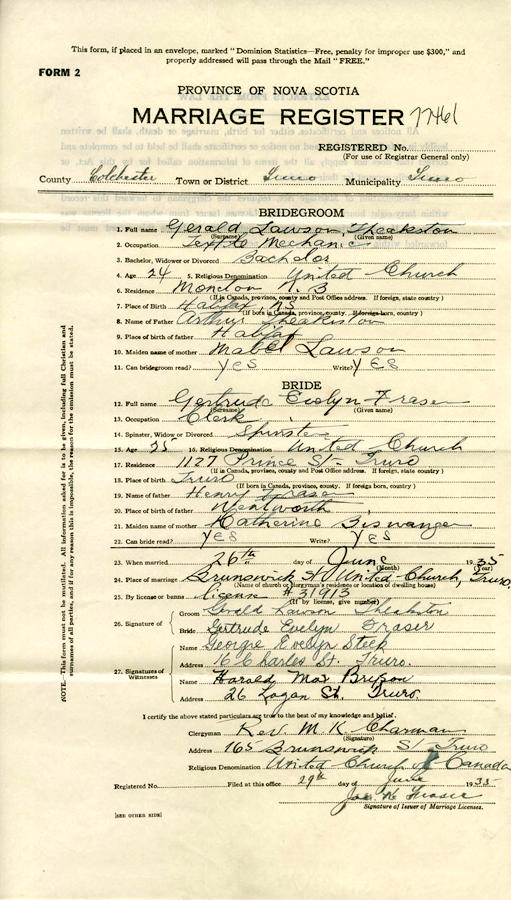 This form, if placed in an envelope, marked "Dominion Statistics—Free, penalty for improper use $300," and
properly addressed will pass through the Mail "FREE."
FORM 2
PROVINCE OF NOVA SCOTIA
MARRIAGE REGISTER 7746
REGISTERED No.
(For use of Registrar General only)
County Colchester Town or District Truro Municipality Truro
BRIDEGROOM
1. Full name Gerald Lawson Theakston
(Surname) (Given name)
2. Occupation Textile Mechanic
3. Bachelor, Widower or Divorced Bachelor
4. Age 24 5. Religious Denomination United Church
6. Residence Moncton N. B
(If in Canada, province, county and Post Office address. If foreign, state country)
7. Place of Birth Halifax NS
(If born in Canada, province, county. If foreign-born, country)
8. Name of Father Arthur Theakston
9. Place of birth of father Halifax
10. Maiden name of mother Mabel Lawson
11. Can bridegroom read? YES Write? YES
BRIDE
12. Full name Gertrude Evelyn Fraser
(Surname) (Given name)
13. Occupation Clerk
14. Spinster, Widow or Divorced Spinster
15. Age 25 16. Religious Denomination United Church
17. Residence 1127 Prince St - Truro
(If in Canada, province, county and Post Office address. If foreign, state country)
18. Place of birth Truro
(If born in Canada, province, county. If foreign born, country)
19. Name of father Henry Fraser
20. Place of birth of father Wentworth
21. Maiden name of mother Katherine Biswanger
22. Can bride read? YES Write? YES
23. When married 26th day of June 1935
(Month) (Year)
24. Place of marriage Brunswick St United Church, Truro.
(Name of church or clergyman's residence or location of dwelling house)
25. By license or banns license #31913
(If by license, give number)
26. Signature of Groom Gerald Lawson Theakston
Bride Gertrude Evelyn Fraser
27. Signatures of Witnesses
Name Georgie Evelyn Steek
Address 16 Charles St. Truro.
Name Harold Max Bryson
Address 26 Logan St. Truro
I certify the above stated particulars are true to the best of my knowledge and belief.
Clergyman Rev. M. K. Charman
(Signature)
Address 165 Brunswick St Truro
Religious Denomination United Church of Canada
Registered No. Filed at this office 29th day of June 1935
Jas. K. Fraser
Signature of Issuer of Marriage Licenses.
[SEE OTHER SIDE]
NOTE.—This form must not be mutilated. All information asked for is to be given, including full Christian and
surnames of all parties, and if for any reason this is impossible, the reason for the omission must be stated.